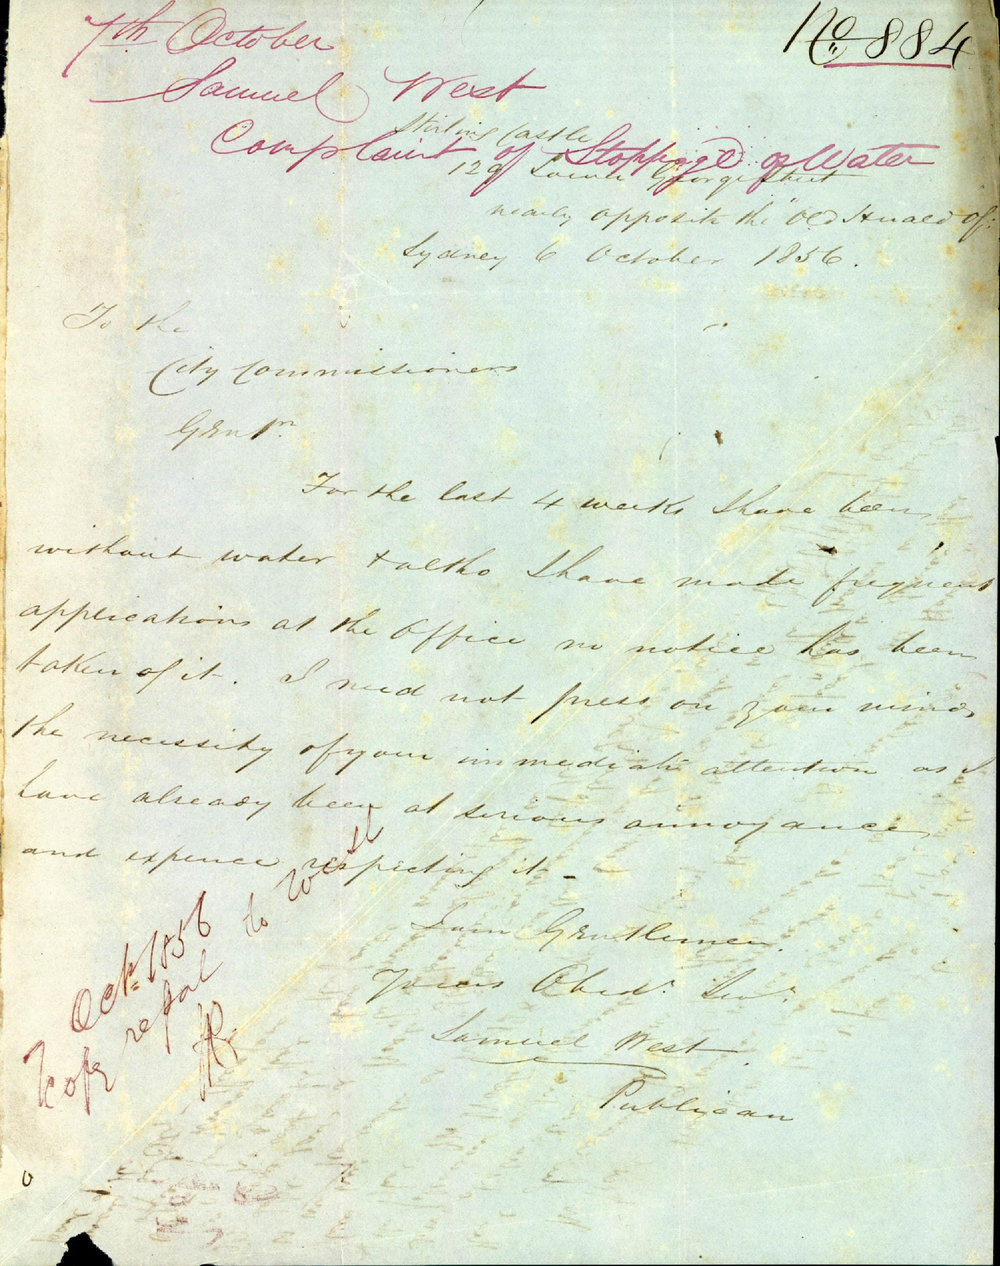 No 884
7th October
Samuel West
Complaint of Stoppage of Water
Stirling Castle
129 Lower George Street
nearly opposite the "Old Herald Of:
Sydney 6 October 1856.
To the
City Commissioners
Gentn.
For the last 4 weeks I have been
without water & altho I have made frequent
applications at the Office no notice has been
taken of it. I need not press on your minds
the necessity of your immediate attention as I
have already been at serious annoyance
and expence respecting it -
I am Gentlemen.
Yours Obedt. Servt.
Samuel West
Publican
7 Octr. 1856
Copy to West